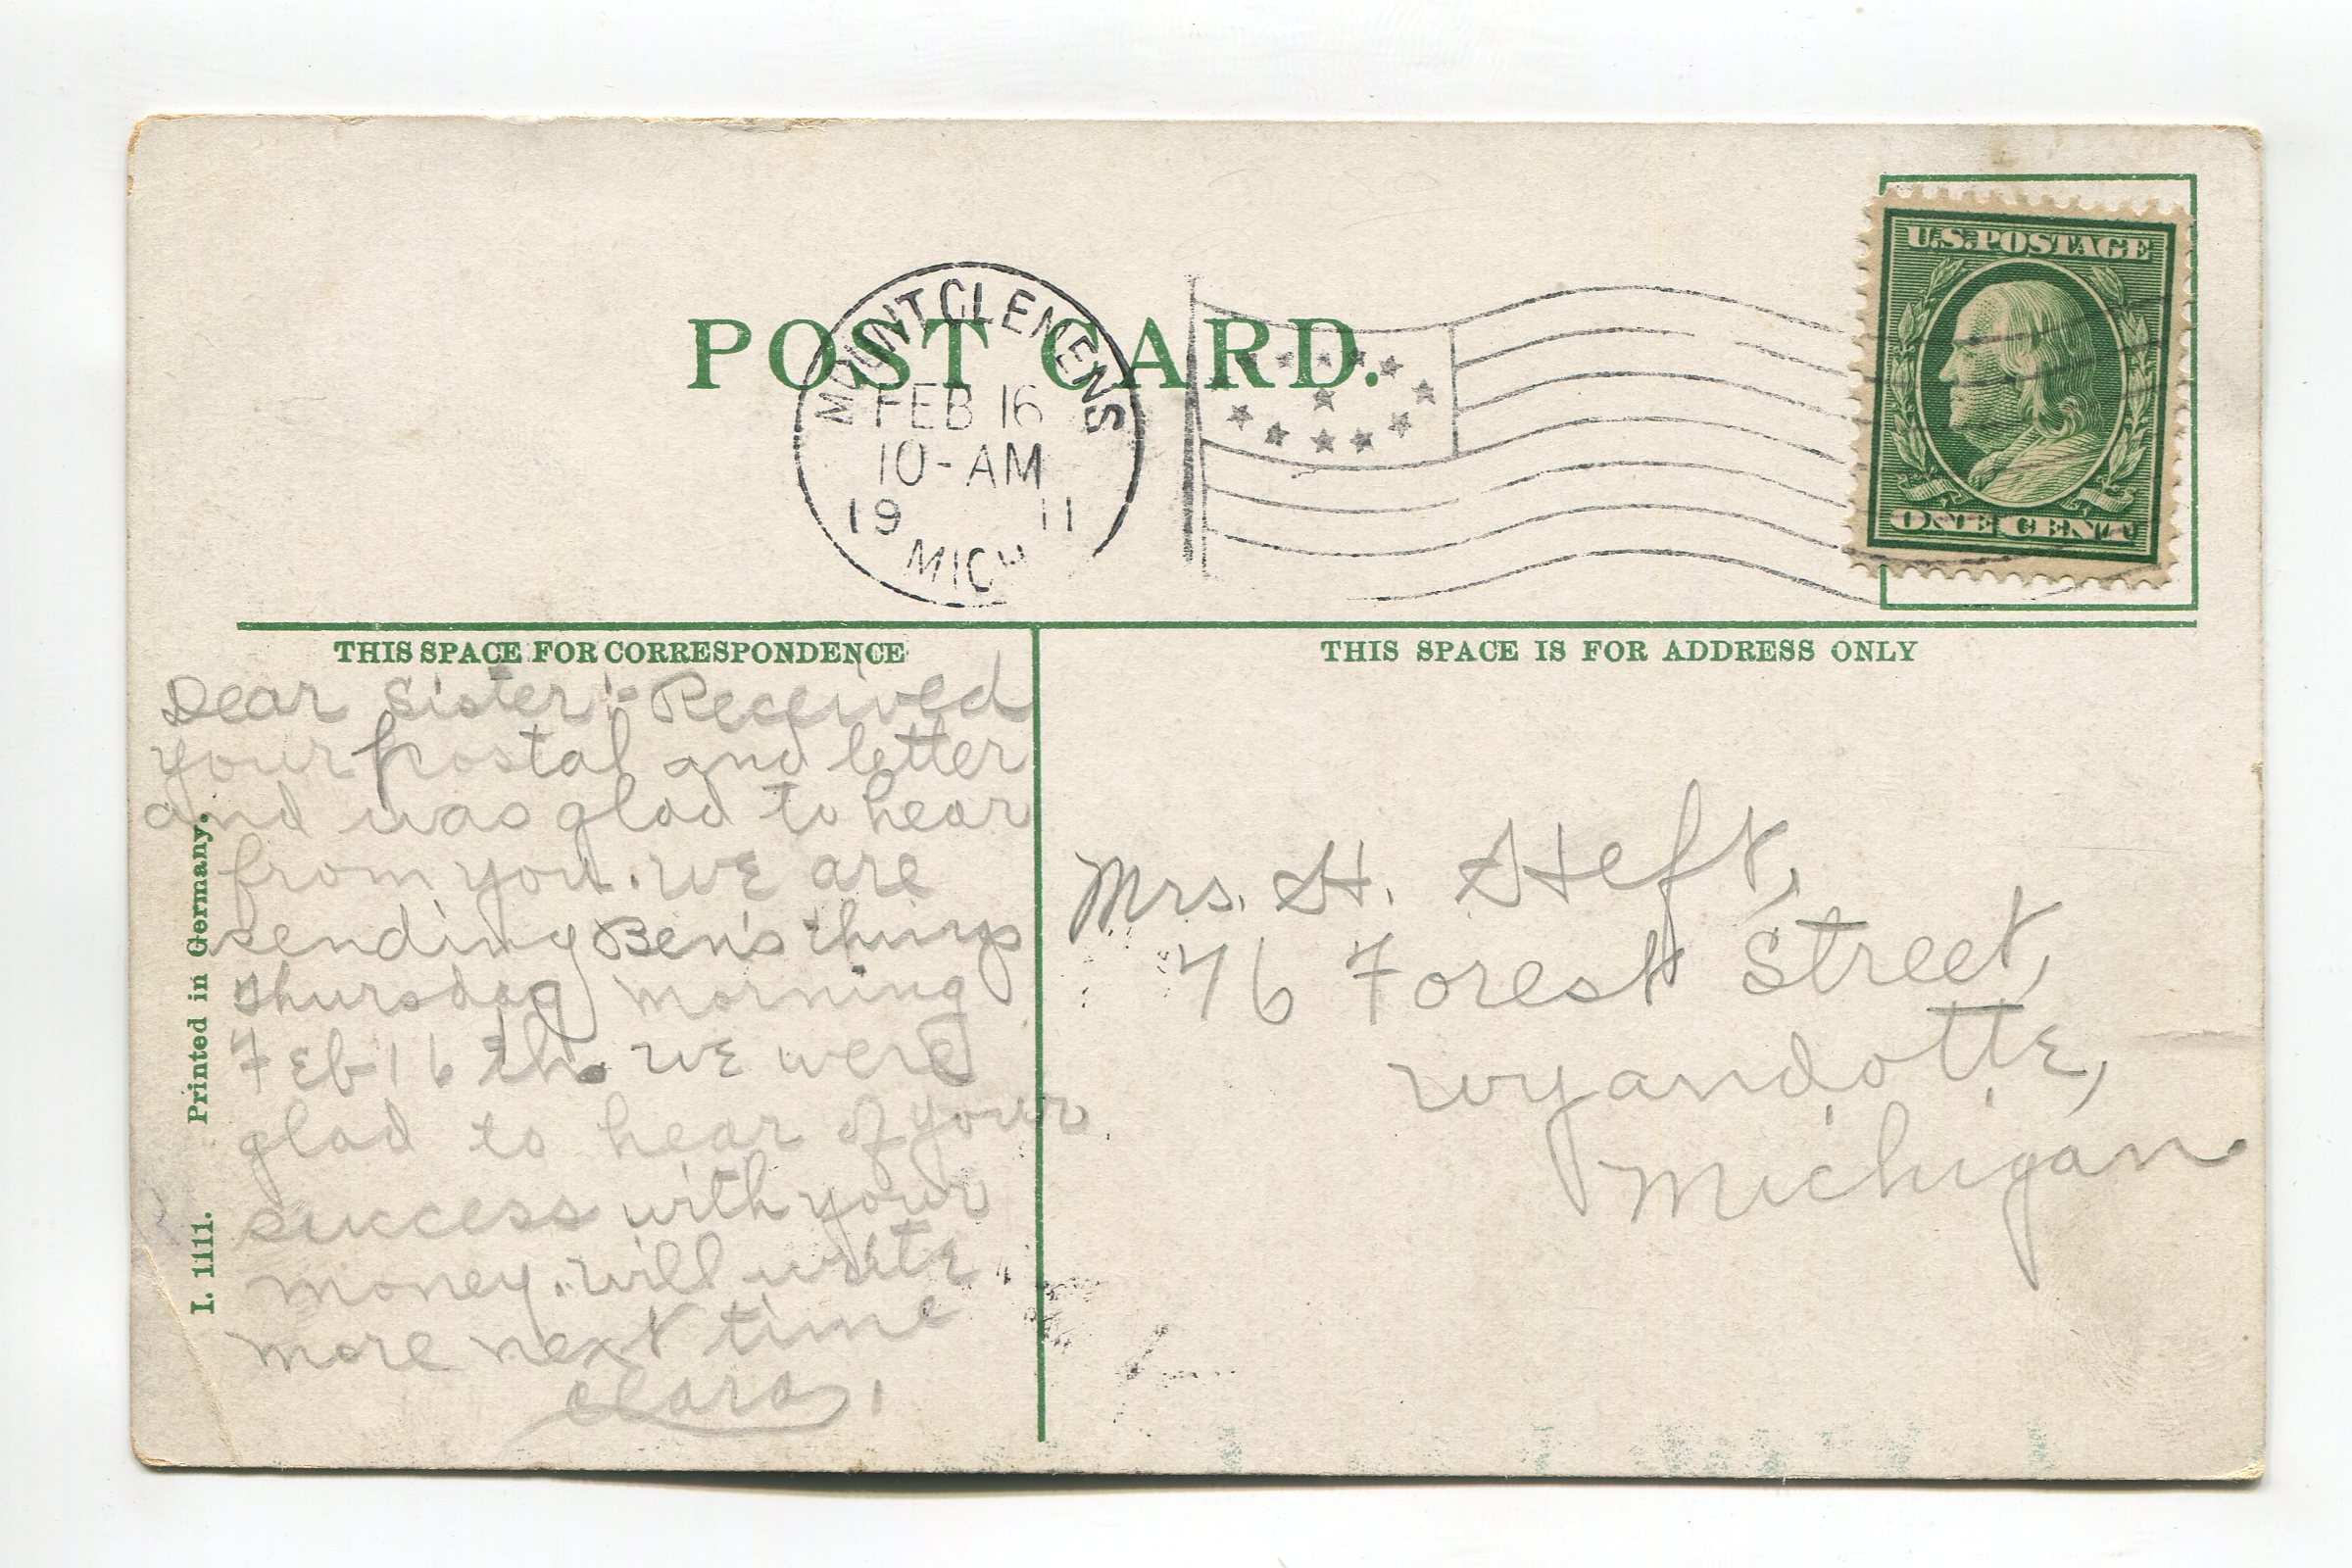 U.S. POSTAGE
ONE CENT
POST CARD.
MOUNT CLEMENS
FEB 16
10-AM
19 11
MICH
THIS SPACE FOR CORRESPONDENCE
Dear Sister:- Received
your postal and letter
and was glad to hear
from you. We are
sending Ben's things
Thursday morning
Feb 16 th. We were
glad to hear of your
success with your
money. Will write
more next time
Clara,
THIS SPACE IS FOR ADDRESS ONLY
Mrs. H. Heft,
76 Forest Street,
Wyandotte,
Michigan.
I. 1111. Printed in Germany.